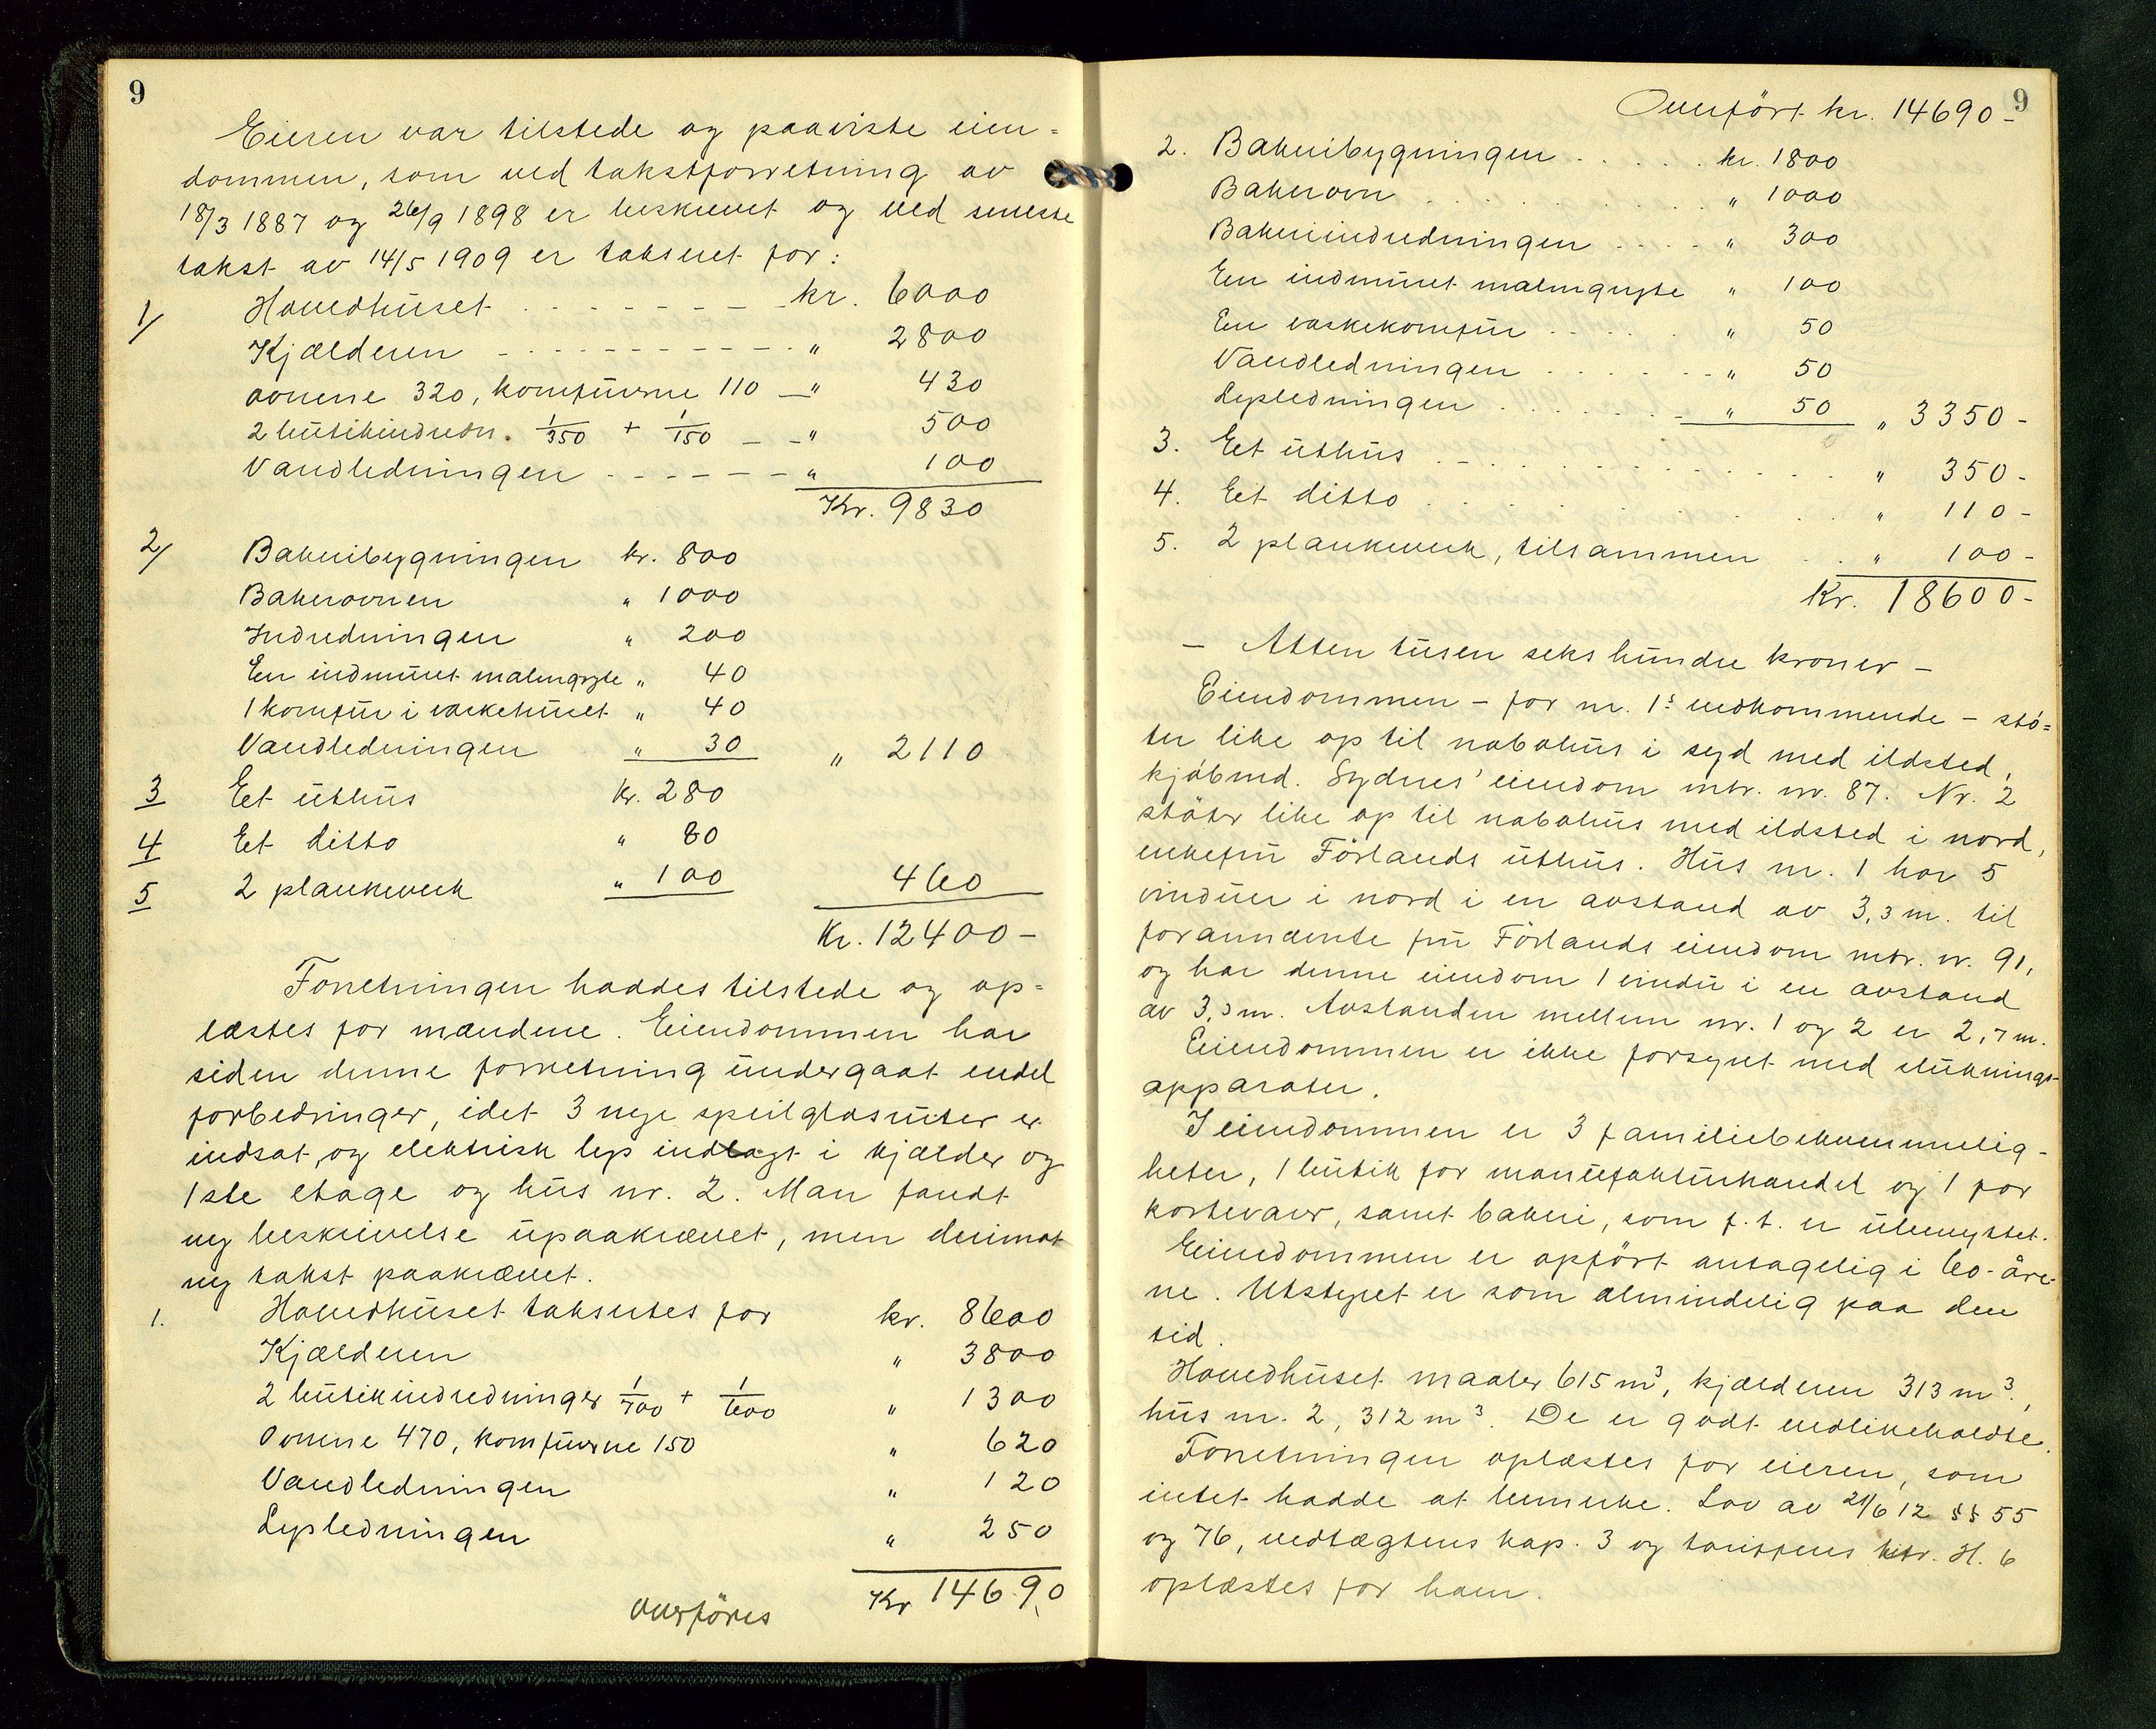 9
Eieren var tilstede og paaviste eien=
dommen, som ved takstforretning av
18/3 1887 og 26/9 1898 er beskrevet og ved seneste
takst av 14/5 1909 er taksert for:
1/ Hovedhuset . - - - - - - kr. 6000
Kjælderen - - - - - - - - - - " 2800
ovnene 320, komfurerne 110 - " 430
2 butikindredn. 1/350 + 1/150 - - " 500
Vandledningen - - - - - - " 100
Kr. 9830
2/ Bakeribygningen kr. 800
Bakerovnen " 1000
Indredningen " 200
En indmuret malmgryte " 40
1 komfur i vaskehuset " 40
Vandledningen " 30 " 2110
3 Eet uthus kr. 280
4 Et ditto " 80
5 2 plankeverk " 100 460
Kr. 12400-
Forretningen haddes tilstede og op=
læstes for mændene. Eiendommen har
siden denne forretning undergaat endel
forbedringer, idet 3 nye speilglasruter er
indsat, og elektrisk lys indlagt i kjælder og
1ste etage og hus nr. 2. Man fandt
ny beskrivelse upaakrævet, men derimot
ny takst paakrævet.
1. Hovedhuset takseres for kr. 8600
Kjælderen " 3800
2 butikindredninger 1/700 + 1/600 " 1300
Ovnene 470, komfurerne 150 " 620
Vandledningen " 120
Lysledningen " 250
Overføres Kr 14690
9
Overført kr. 14690-
2. Bakeribygningen . . . . . kr. 1800
Bakerovn . . . . . . . . " 1000
Bakeriindredningen . . . . " 300
En indmuret malmgryte " 100
En vaskekomfur . . . . " 50
Vandledningen . . . . . . " 50
Lysledningen . . . . . . . " 50 " 3350-
3. Eet uthus . . . . . . . . . . . " 350-
4. Eet ditto . . . . . . . . . . . " 110-
5. 2 plankeverk, tilsammen . . " 100-
Kr. 18600-
- Atten tusen seks hundre kroner -
Eiendommen - for nr. 1s vedkommende - stö=
ter like op til nabohus i syd med ildsted,
kjøbmd. Sydnes' eiendom mtr. nr. 87. Nr. 2
støter like op til nabohus med ildsted i nord,
enkefru Förlands uthus. Hus nr. 1 har 5
vinduer i nord i en avstand av 3,3 m. til
forannævnte fru Förlands eiendom mtr. nr. 91,
og har denne eiendom 1 vindu i en avstand
av 3,3 m. Avstanden mellem nr. 1 og 2 er 2,7 m.
Eiendommen er ikke forsynet med sluknings-
apparater.
I eiendommen er 3 familiebekvemmelig-
heter, 1 butik for manufakturhandel og 1 for
kortevarer, samt bakeri, som f. t. er ubenyttet.
Eiendommen er opført antagelig i 60-åre-
ne. Utstyret er som almindelig paa den
tid.
Hovedhuset maaler 615 m³, kjælderen 313 m³,
hus nr. 2, 312 m³. De er godt vedlikeholdte.
Forretningen oplæstes for eieren, som
intet hadde at bemerke. Lov av 21/6 12 §§ 55
og 76, vedtægtens kap. 3 og tariffens litr. H. 6
oplæstes for ham.